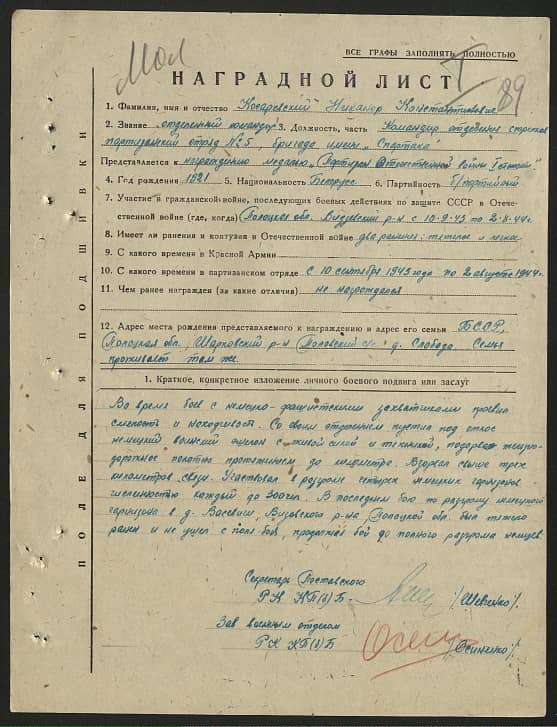 Мол
ВСЕ ГРАФЫ ЗАПОЛНЯТЬ ПОЛНОСТЬЮ
НАГРАДНОЙ ЛИСТ
89
1. Фамилия, имя и отчество Косаревский Никанор Константинович
2. Звание отделенный командир 3. Должность, часть Командир отделения
партизанский отряд №5, бригада имени „Спартака"
Представляется к награждению медалью „Партизан Отечественной войны
4. Год рождения 1921 5. Национальность Белорус 6. Партийность б/партийный
7. Участие в гражданской войне, последующих боевых действиях по защите СССР в Отече-
ственной войне (где, когда) Полоцкая обл. Видзевский р-н с 10.9.43 по 2.8.44г.
8. Имеет ли ранения и контузии в Отечественной войне два ранения: тяжелое и легкое
9. С какого времени в Красной Армии
10. С какого времени в партизанском отряде с 10 сентября 1943 года по 2 августа 1944г.
11. Чем ранее награжден (за какие отличия) не награждался
12. Адрес места рождения представляемого к награждению и адрес его семьи БССР,
Полоцкая обл., Шарковский р-н с/с д. Слобода Семья
проживает там же.
1. Краткое, конкретное изложение личного боевого подвига или заслуг
Во время боев с немецко-фашистскими захватчиками проявил
смелость и находчивость. Со своим отделением пустил под откос
немецкий воинский эшелон с живой силой и техникой, подорвал железно-
дорожное полотно протяжением до километра. Взорвал свыше трех
километров связи. Участвовал в разгроме четырех немецких гарнизонов
численностью каждый до 300 чел. В последнем бою по разгрому немецкого
гарнизона в д. Видзовского р-на, Полоцкой обл. был тяжело
ранен и не ушел с поля боя, продолжая бой до полного разгрома немцев.
Секретарь Поставского
РК КП(б)Б /Шевченко/.
Зав военным отделом
РК КП(б)Б /Осипенко/.
ПОЛЕ ДЛЯ ПОДШИВКИ